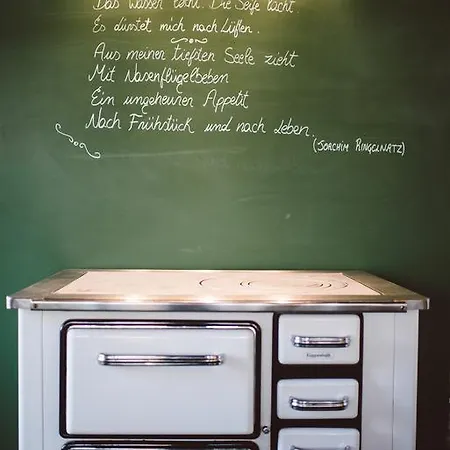 Das Wasser lockt. Die Seife lacht.
Es dürstet mich nach Lüften.
Aus meiner tiefsten Seele zieht
Mit Nasenflügelbeben
Ein ungeheurer Appetit
Nach Frühstück und nach Leben.
(Joachim Ringelnatz)